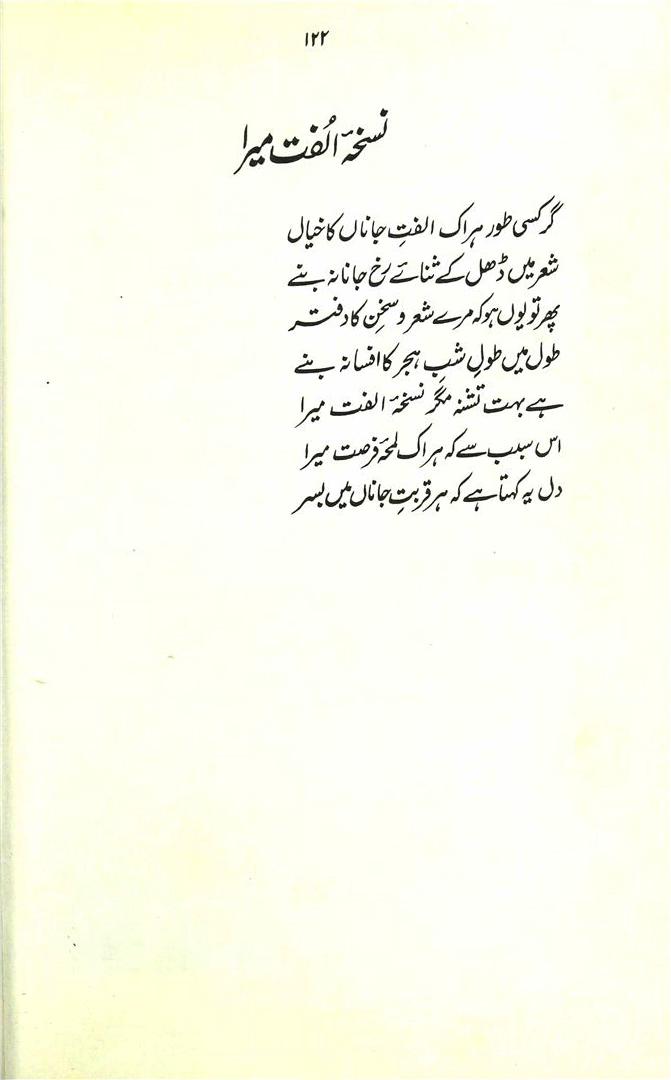 ۱۲۲
نسخۂ اُلفت میرا
گر کسی طور ہر اک الفتِ جاناں کا خیال
شعر میں ڈھل کے ثنائے رخِ جانانہ بنے
پھر تو یوں ہو کہ مرے شعر و سخن کا دفتر
طول میں طولِ شبِ ہجر کا افسانہ بنے
ہے بہت تشنہ مگر نسخۂ الفت میرا
اس سبب سے کہ ہر اک لمحۂ فرصت میرا
دل یہ کہتا ہے کہ ہر قربتِ جاناں میں بسر